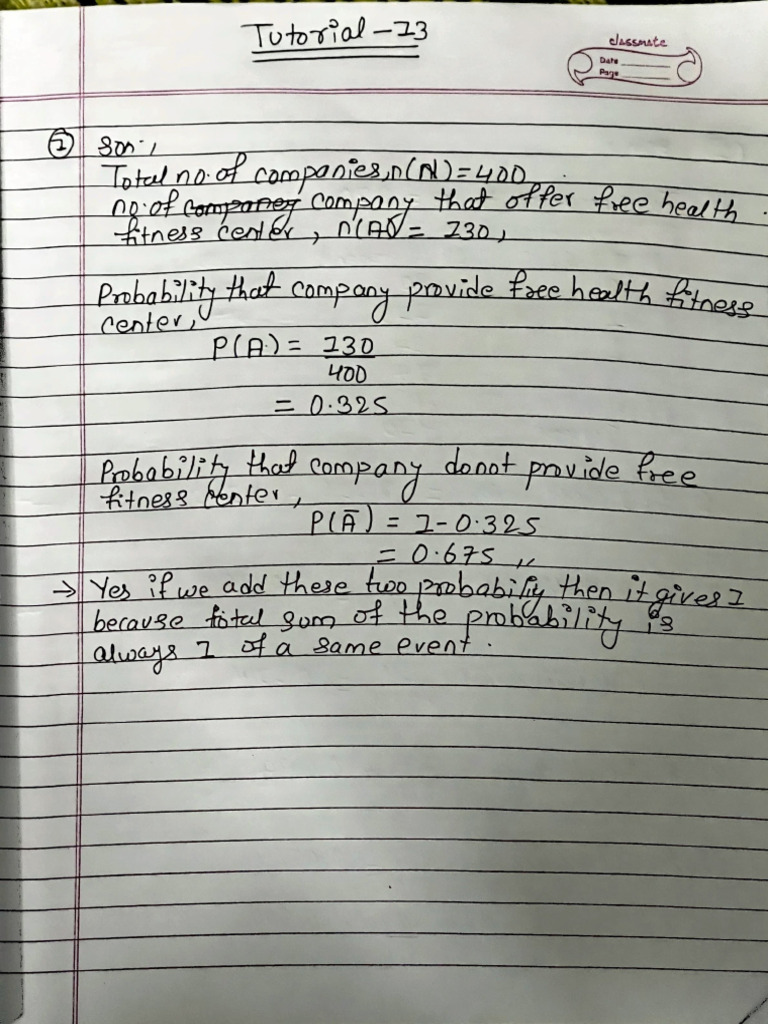 Tutorial - 13
classmate
Date
Page
① Soln:,
Total no. of companies, n(N) = 400
no. of company company that offer free health
fitness center, n(A) = 130,
Probability that company provide free health fitness
center,
P(A) = 130
400
= 0.325
Probability that company donot provide free
fitness center,
P(Ā) = 1 - 0.325
= 0.675 ,,
→ Yes if we add these two probabiliy then it gives 1
because total sum of the probability is
always 1 of a same event.